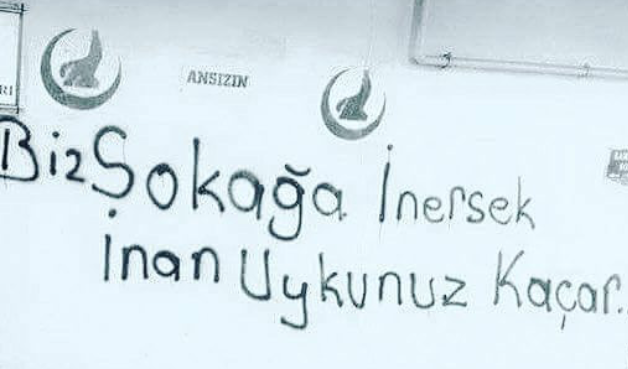 ANSIZIN
Biz Şokağa İnersek
inan Uykunuz Kaçar..